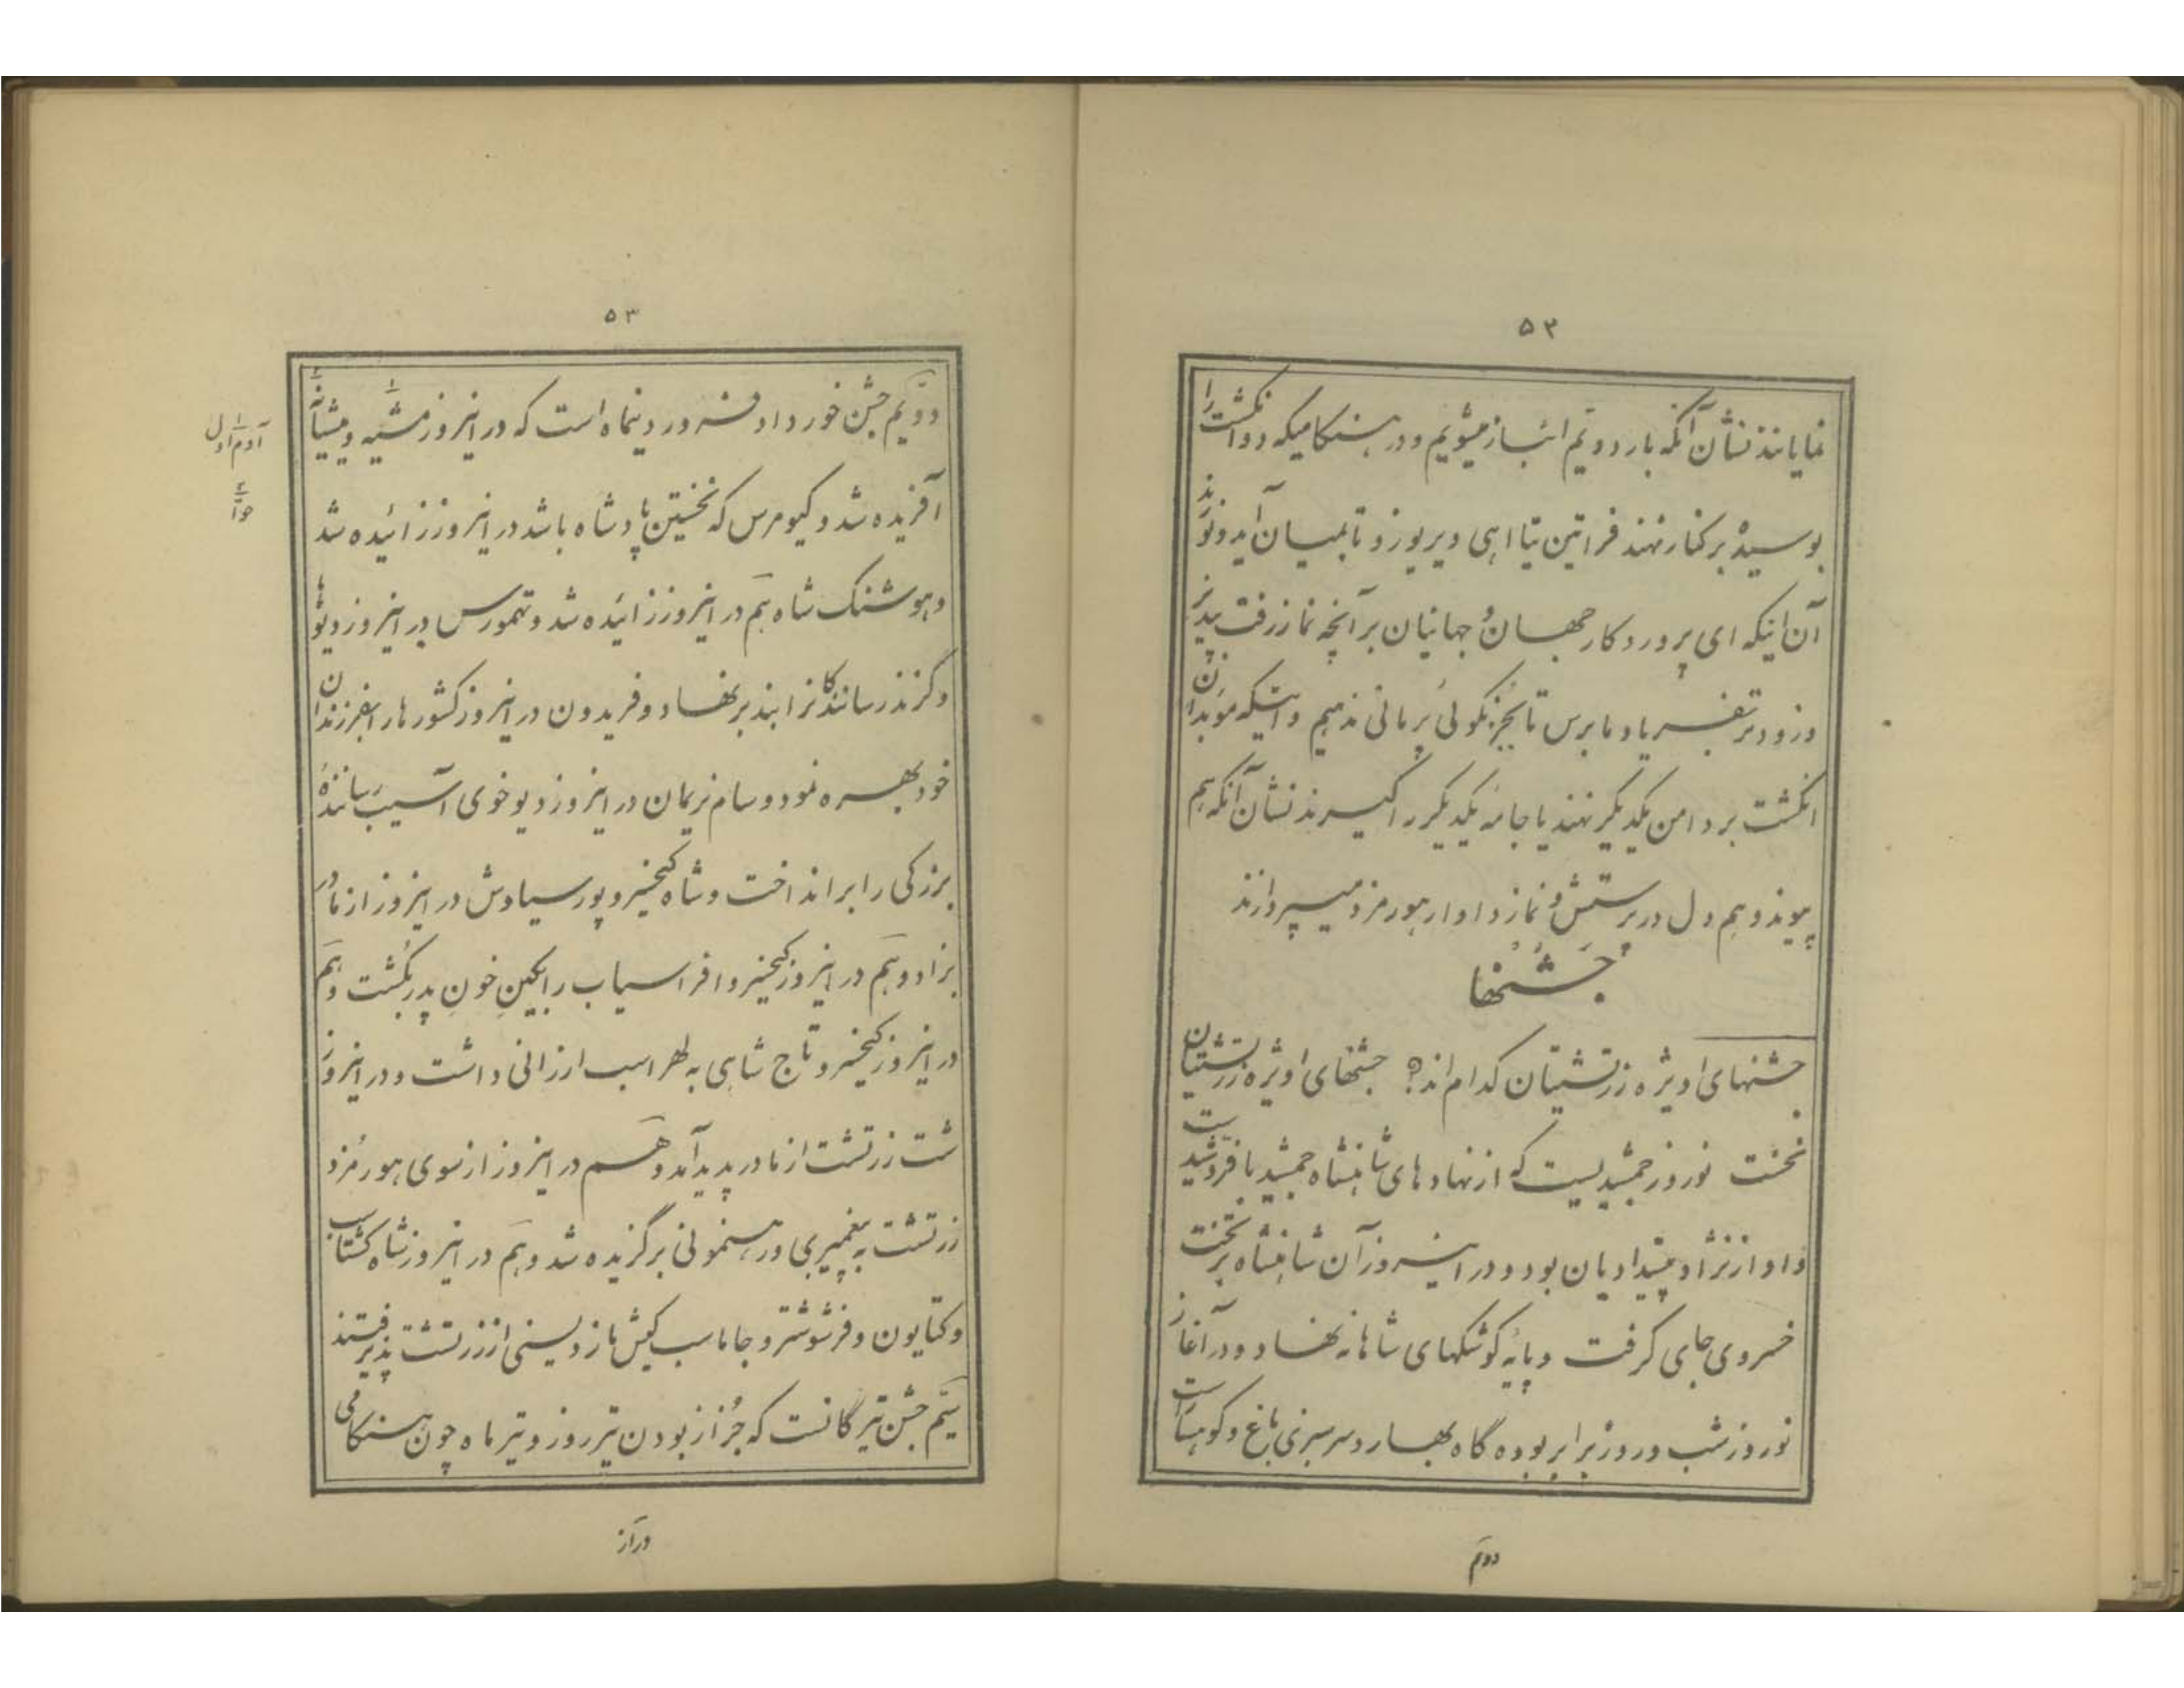 ۵۲
نمایانند نشان آنکه بار دویّم انباز میشویم و در هنگامیکه دو انگشت را
بوسیده بر کنار نهند فراتین تیا اهی ویریوزو تا بمیان آید و نویذ
آن اینکه ای پروردگار جهان و جهانیان بر آنچه نماز رفت بپذیر
و زودتر بفریاد ما برس تا بجز نکوئی پُرمانی ندهیم و اینکه موبدان
انگشت بر دامن یکدیگر نهند یا جامه یکدیگر را گیرند نشان آنکه بهم
پیوند و هم دل در پرستش و نماز دادار هورمزد میپردازند
جَشْنها
جشنهای اویژه زرتشتیان کدام اند؟ جشنهای اویژه زرتشتیان
نخست نوروز جمشیدیست که از نهادهای شاهنشاه جمشید با فر و شید است
و او از نژاد پیشدادیان بود و در این روز آن شاهنشاه بر تخت
خسروی جای گرفت و پایه کوشکهای شاهانه نهاد و در آغاز
نوروز شب و روز برابر بوده گاه بهار و سرسبزی باغ و کوه است
دویّم
۵۳
دویّم جشن خورداد فروردینماه است که در اینروز مشیه و میشیانه
آفریده شد و کیومرس که نخستین پادشاه باشد در اینروز زائیده شد
و هوشنگ شاه هَم در اینروز زائیده شد و تهمورس در اینروز دیوها
و گزندرسانندگانرا ببند بر نهاد و فریدون در اینروز کشورها را بفرزندان
خود بهره نمود و سام نریمان در اینروز دیو خوی آسیب رسانندهٔ
بزرگی را برانداخت و شاه کیخسرو پور سیاوش در اینروز از مادر
بزاد و هَم در اینروز کیخسرو افراسیاب را بکینِ خونِ پدر بکُشت و هَم
در اینروز کیخسرو تاج شاهی به لهراسب ارزانی داشت و در اینروز
شت زرتشت از مادر پدید آمد و هَم در اینروز از سوی هورمُزد
زرتشت به پیغمبری و رهنمونی برگزیده شد و هَم در اینروز شاه گشتاسب
و کتایون و فرشوشتر و جاماسب کیش مازدیسنی از زرتشت پذیرفتند
سیّم جشن تیرگانست که جُز از بودن تیر روز و تیر ماه چون هنگامی
آدم اول
حوّا
دراز